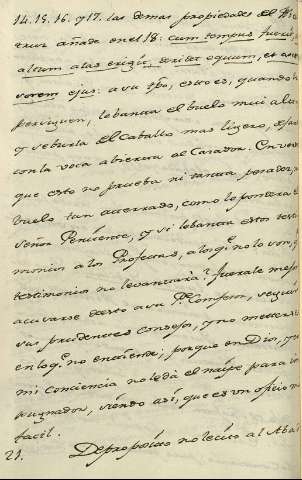 14. 15. 16. y 17. las demas propiedades del
truz añade en el 18: cum tempus fuerit,
altum alas erigit: deridet equum, et asce
sorem ejus: a su tpo, esto es, quando la
persiguen, lebanta el buelo mui alto
y se burla el Caballo mas ligero, dejan
con la voca abierta al Cazador. Con ver
que esto no prueba ni tanta pesadez,
buelo tan aterrado, como lo pondera el
Señor Penitente, y si lebanta estos testi
monios a los Profetas, a los q.e no lo son, q
testimonios no levantaria? fuerale mejor
acusarse de esto a su P.e Confesor, seguir
sus prudentes consejos, y no meterse
en lo q.e no entiende; porque en Dios, y en
mi conciencia no le da el naipe para im
pugnador, siendo asi, que es un oficio mui
facil.
21. De proposito no lecito al Abad